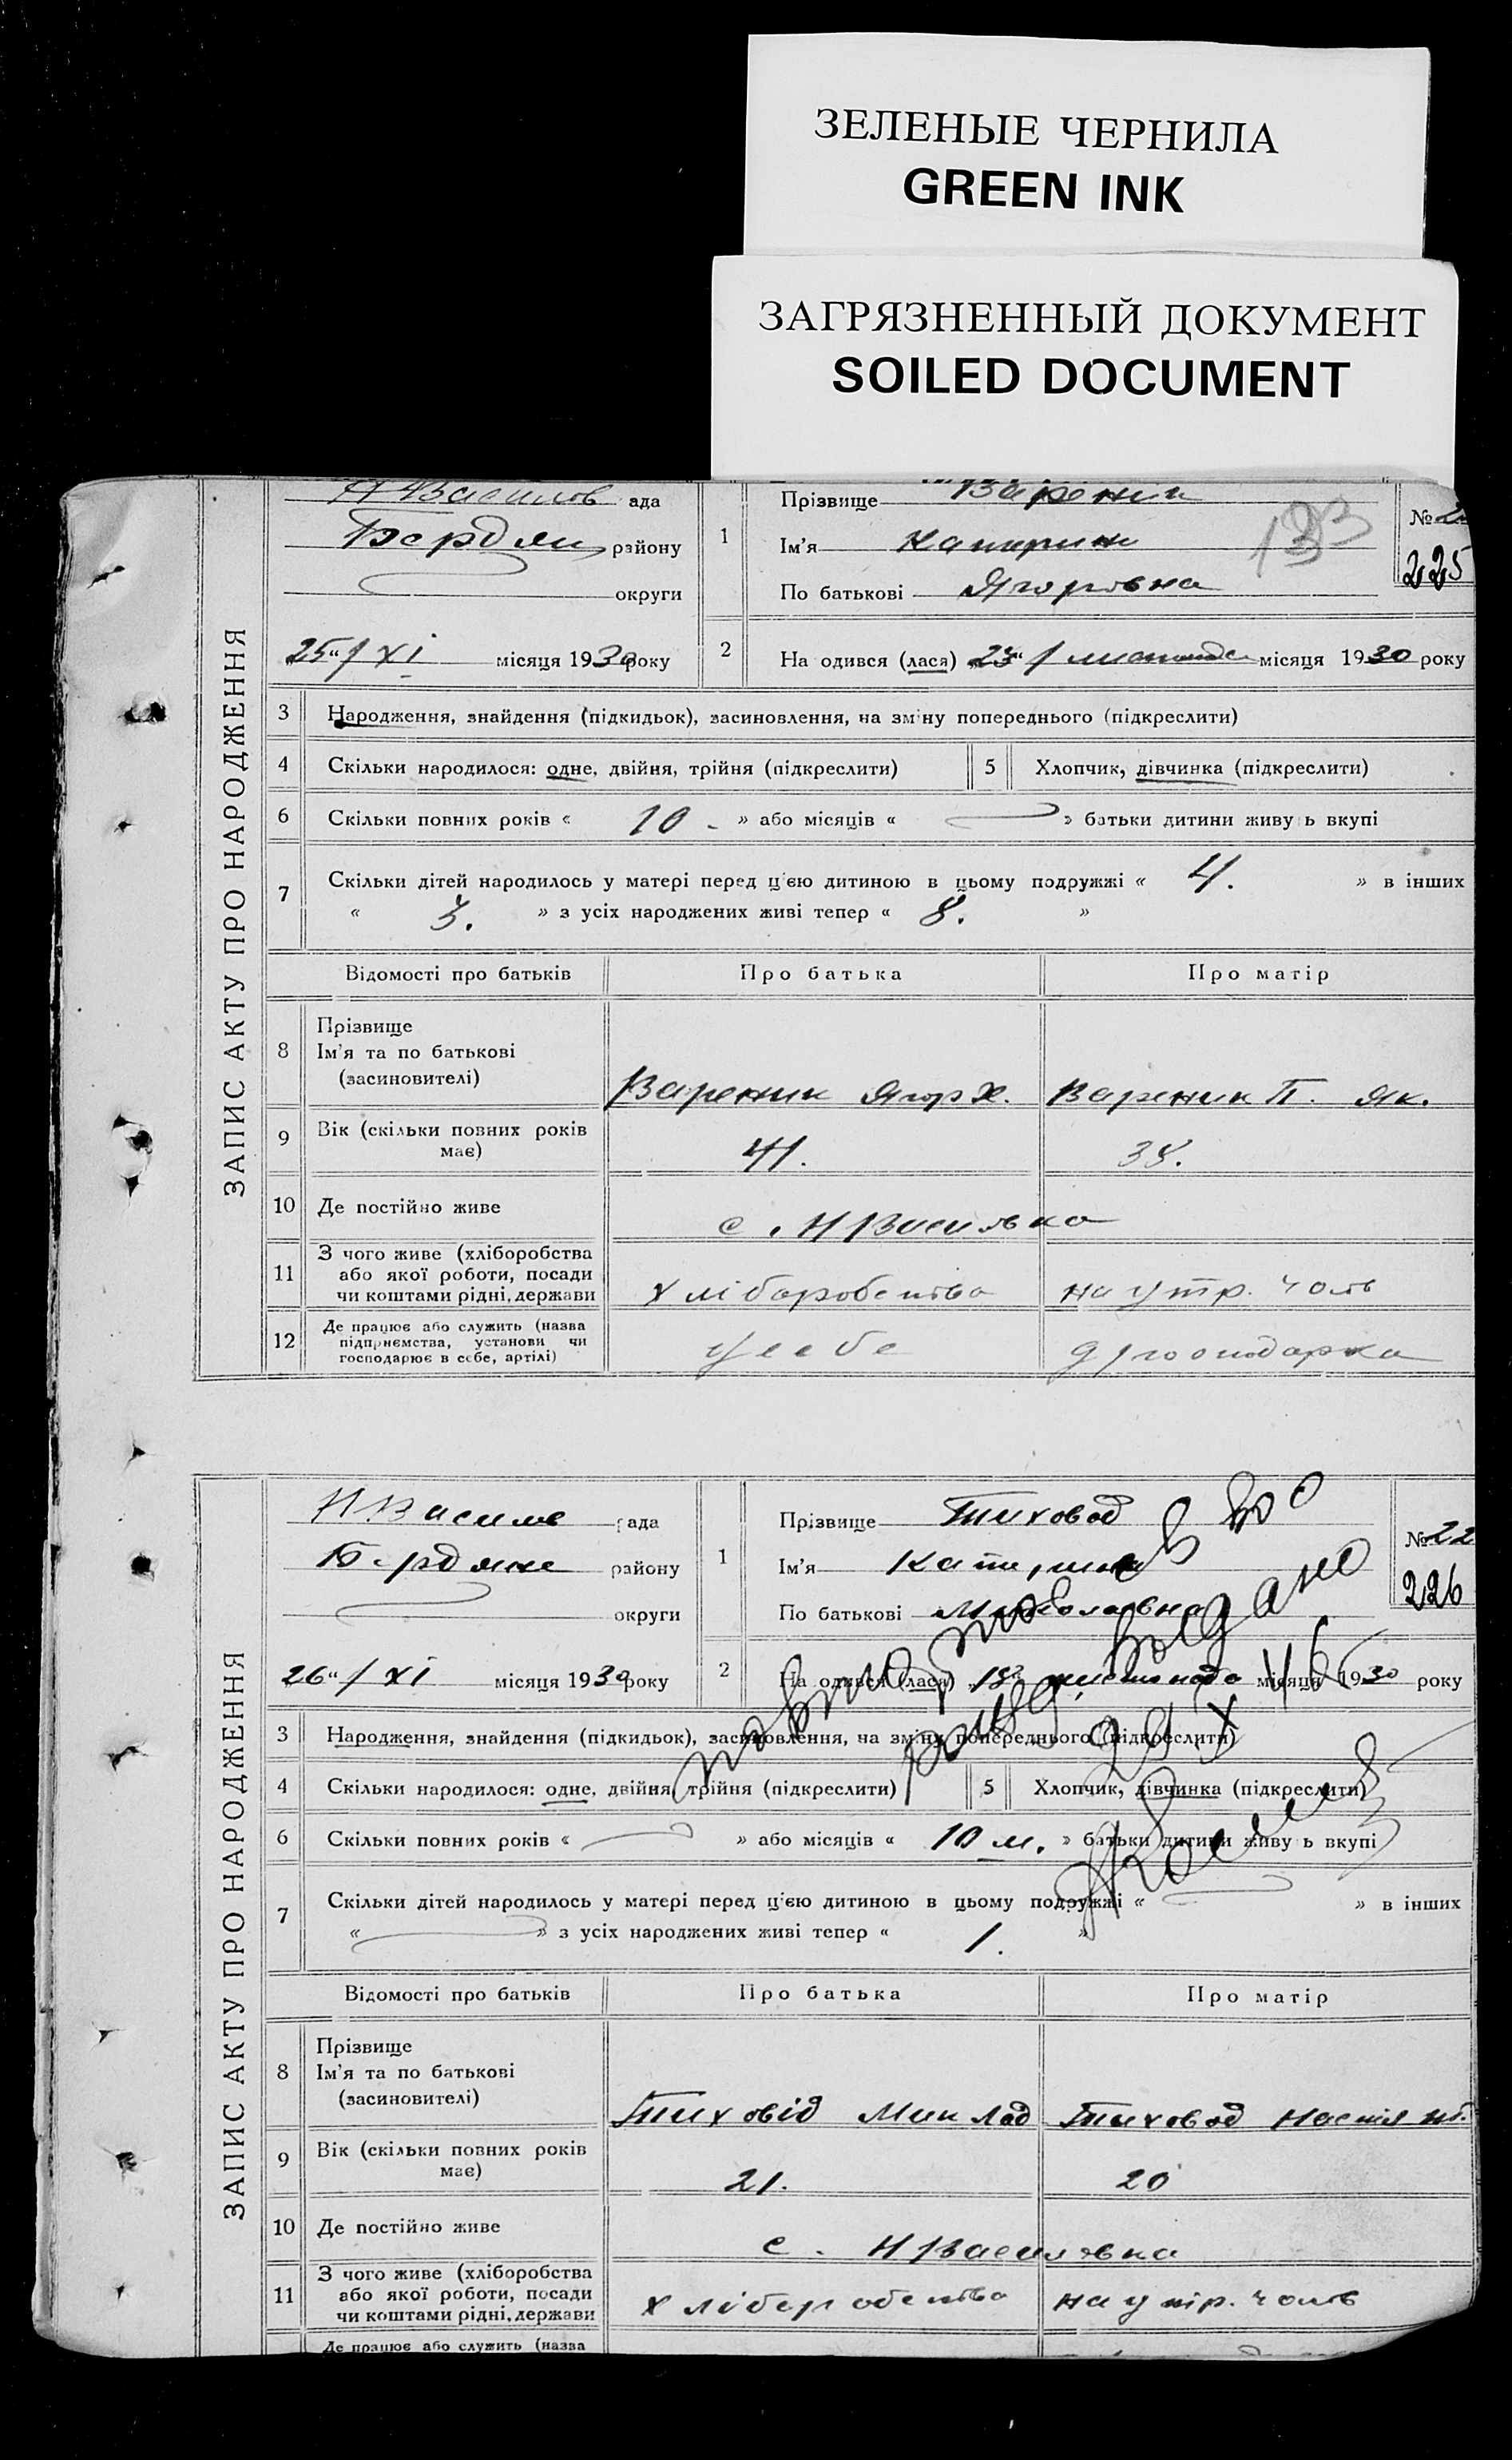 ЗЕЛЕНЫЕ ЧЕРНИЛА
GREEN INK
ЗАГРЯЗНЕННЫЙ ДОКУМЕНТ
SOILED DOCUMENT
ЗАПИС АКТУ ПРО НАРОДЖЕННЯ
ада
Бердян району
округи
25 "/ XI місяця 1930 року
1
Прізвище Вареник
Ім'я Катерин
По батькові Ягоровна
133
№ 2
225
2
На одився (лася) 23 "/ листопада місяця 1930 року
3 Народження, знайдення (підкидьок), засиновлення, на зміну попереднього (підкреслити)
4 Скільки народилося: одне, двійня, трійня (підкреслити) 5 Хлопчик, дівчинка (підкреслити)
6 Скільки повних років « 10 - » або місяців « » батьки дитини живу ь вкупі
7 Скільки дітей народилось у матері перед ц'єю дитиною в цьому подружжі « 4. » в інших
« 3. » з усіх народжених живі тепер « 8. »
Відомості про батьків Про батька Про матір
8 Прізвище
Ім'я та по батькові
(засиновителі)
Вареник Ягор Х. Вареник П. Як.
9 Вік (скільки повних років
має)
41. 38.
10 Де постійно живе с. Н Василівка
11 З чого живе (хліборобства
або якої роботи, посади
чи коштами рідні, держави
хліборобство на утр. чолв
12 Де працює або служить (назва
підприємства, установи чи
господарює в себе, артілі)
у себе д/господарка
ЗАПИС АКТУ ПРО НАРОДЖЕННЯ
Н Василів рада
Бердянс району
округи
26 "/ XI місяця 1930 року
1
Прізвище Тиховод
Ім'я Катерина
По батькові Миколаєвна
№ 22
226
2
На одився (лася) 18 листопада місяця 1930 року
повторно
выдано
3 Народження, знайдення (підкидьок), засиновлення, на зміну попереднього (підкреслити)
4 Скільки народилося: одне, двійня, трійня (підкреслити) 5 Хлопчик, дівчинка (підкреслити)
6 Скільки повних років « » або місяців « 10 м. » батьки дитини живу ь вкупі
7 Скільки дітей народилось у матері перед ц'єю дитиною в цьому подружжі « » в інших
« » з усіх народжених живі тепер « 1. »
Відомості про батьків Про батька Про матір
8 Прізвище
Ім'я та по батькові
(засиновителі)
Тиховід Мик Лад Тиховод Настя
9 Вік (скільки повних років
має)
21. 20
10 Де постійно живе с. Н Василівка
11 З чого живе (хліборобства
або якої роботи, посади
чи коштами рідні, держави
хліборобство на утр. чолв
Де працює або служить (назва